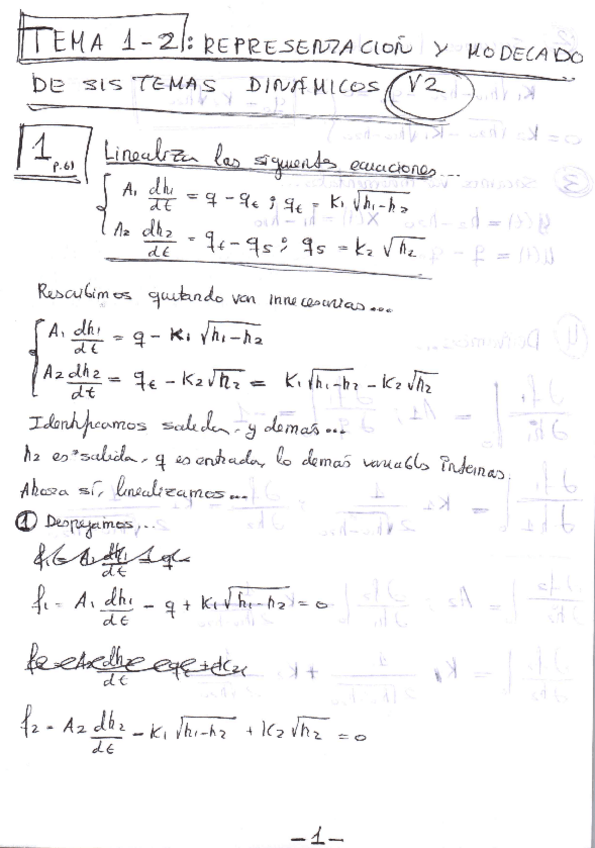 TEMA 1-2: REPRESENTACIÓN Y MODELADO
DE SISTEMAS DINÁMICOS V2
1 p.61 Linealiza las siguientes ecuaciones...
A₁ dh₁/dt = q - qₜ ; qₜ = K₁√(h₁-h₂)
A₂ dh₂/dt = qₜ - q₅ ; q₅ = K₂√h₂
Rescribimos quitando var innecesarias...
A₁ dh₁/dt = q - K₁√(h₁-h₂)
A₂ dh₂/dt = qₜ - K₂√h₂ = K₁√(h₁-h₂) - K₂√h₂
Identificamos salida, y demás...
h₂ es salida, q es entrada, lo demás variables internas.
Ahora sí, linealizamos...
① Despejamos...
f₁ = A₁ dh₁/dt - q + K₁√(h₁-h₂) = 0
f₂ = A₂ dh₂/dt - K₁√(h₁-h₂) + K₂√h₂ = 0
-1-